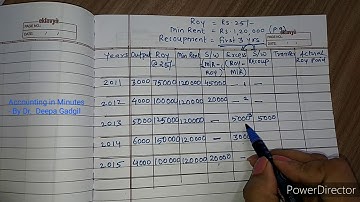 eklavya
PAGE NO.
DATE: / /
Roy = Rs 25/-
Min Rent = Rs 1,20,000 (P.a)
Recoupment = first 3 yrs.
eklavya
PAGE NO.
DATE: / /
Years Output Roy @25/- Min Rent S/w (MR-Roy) Excess (Roy-MR) S/w Recoup Transfer Actual Roy paid
2011 3000 75000 120000 45000 - 1 -
2012 4000 100000 120000 20000 - 2 -
2013 5000 125000 120000 - 5000 5000
2014 6000 150000 120000 - 3000
2015 4000 100000 120000 20000
Accounting in Minutes
By Dr. Deepa Gadgil
PowerDirector